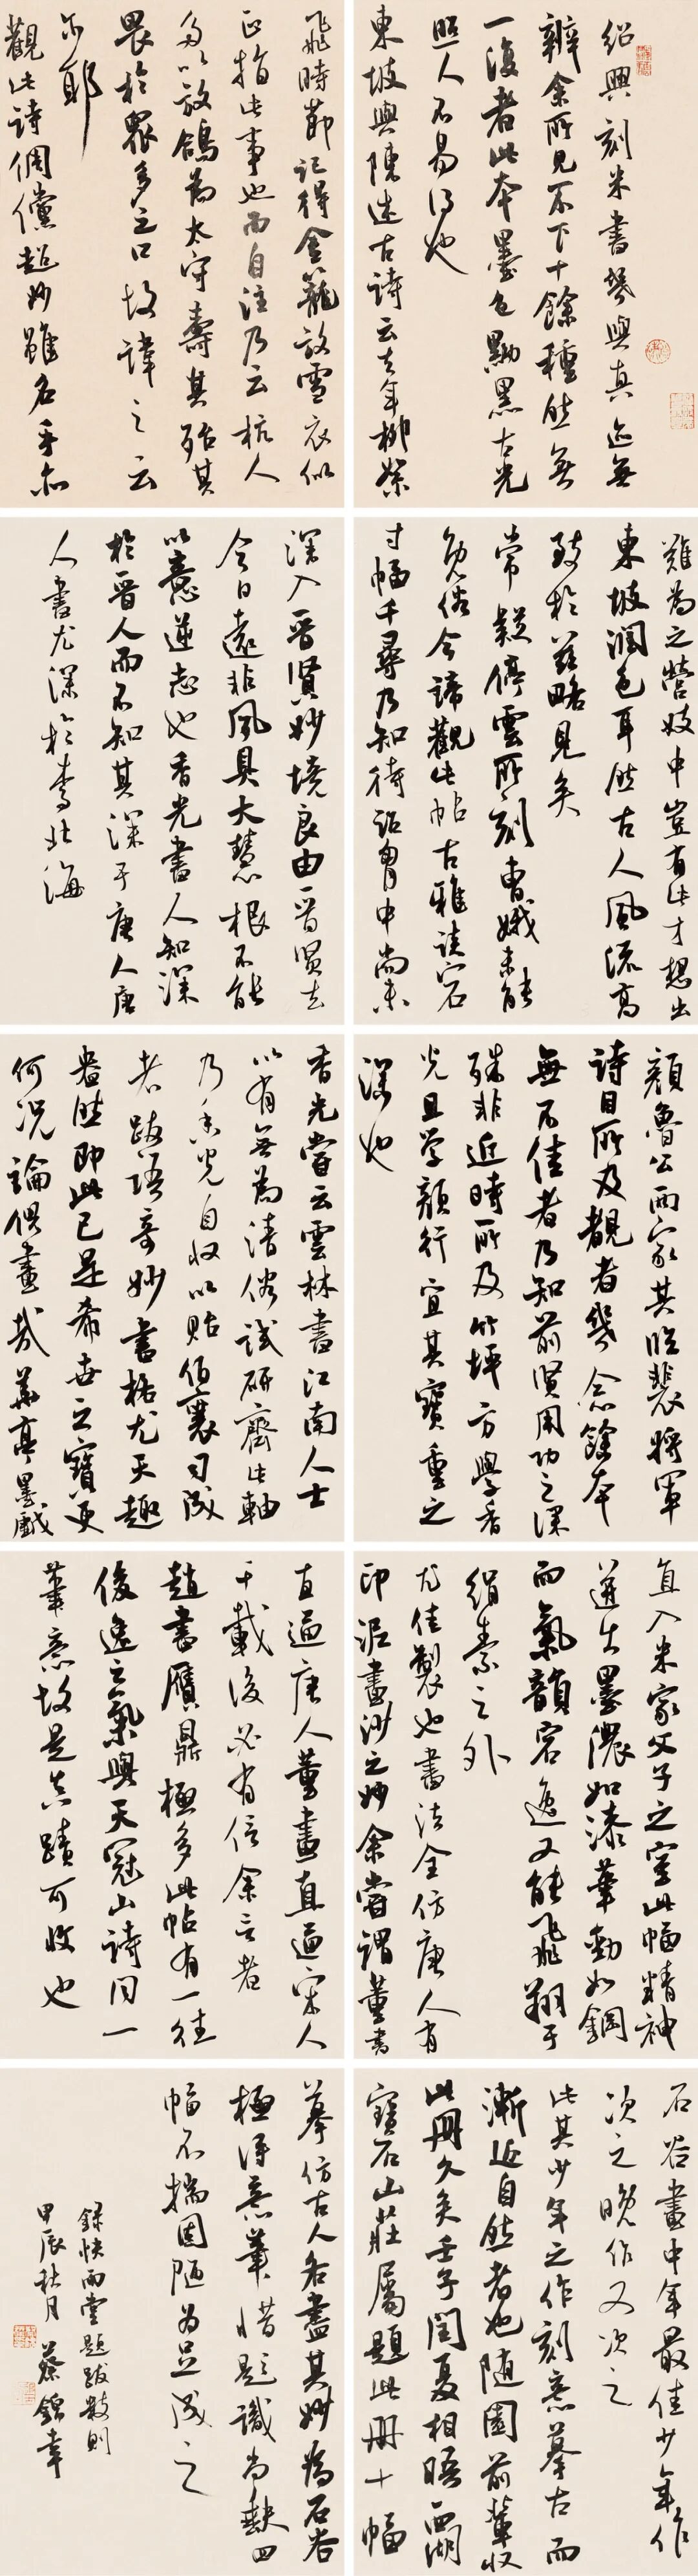 紹興刻米書幾與真迹無
辨余所見不下十餘種然無
一復者此本墨色黝黑古光
照人不易得也
東坡與陳述古詩云去年柳絮
飛時節記得金籠放雪衣似
正指此事也而自注乃云杭人
多以放鴿為太守壽其殆其
畏於眾多之口故諱之云
尔耶
觀此詩倜儻超妙雖名手亦
難為之營妓中豈有此才想出
東坡潤色耳然古人風流高
致於茲略見矣
常疑停雲所刻曹娥未能
免俗今諦觀此帖古雅請宕
寸幅千尋乃知待詔胷中尚未
深入晉賢妙境良由晉賢去
今日遠非風具大慧根不能
以意逆志也香光書人知深
於晉人而不知其深于唐人唐
人書尤深於李北海
顏魯公兩家其臨裴將軍
詩目所及覩者幾念餘本
無不佳者乃知前賢用功之深
殊非近時所及竹坪方學香
光且學顏行宜其寶重之
深也
香光嘗云雲林書江南人士
以有無為清俗識研齋此軸
乃香光自收以貽伯襄司成
者跋語奇妙書格尤天趣
盎然即此已是希世之寶更
何況論倶畫哉華亭墨戲
直入米家父子之室此幅精神
迸出墨濃如漆筆勁如鋼
而氣韻容逸又能飛翔于
絹素之外
尤佳製也書法全仿唐人有
印泥畫沙之妙余嘗謂董書
直逼唐人董畫直逼宋人
千載後必有信余言者
趙書贋鼎極多此帖有一往
俊逸之氣與天冠山詩同一
筆意故是真蹟可收也
石谷畫中年最佳少年作
次之晚作又次之
此其少年之作刻意摹古而
漸近自然者也隨園前輩收
此冊久矣壬子閏夏相晤西湖
寶石山莊屬題此冊十幅
摹仿古人各盡其妙為石谷
極得意筆惜題識尚缺四
幅不揣固陋為足成之
錄快雨堂題跋數則
甲辰秋月 蔡錦章